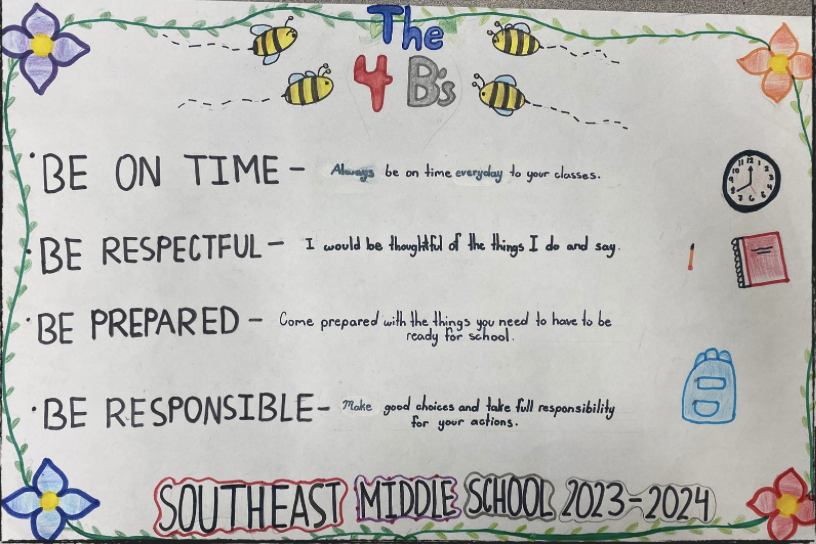 The
4 B's
BE ON TIME - Always be on time everyday to your classes.
BE RESPECTFUL - I would be thoughtful of the things I do and say.
BE PREPARED - Come prepared with the things you need to have to be
ready for school.
BE RESPONSIBLE - Make good choices and take full responsibility
for your actions.
SOUTHEAST MIDDLE SCHOOL 2023-2024